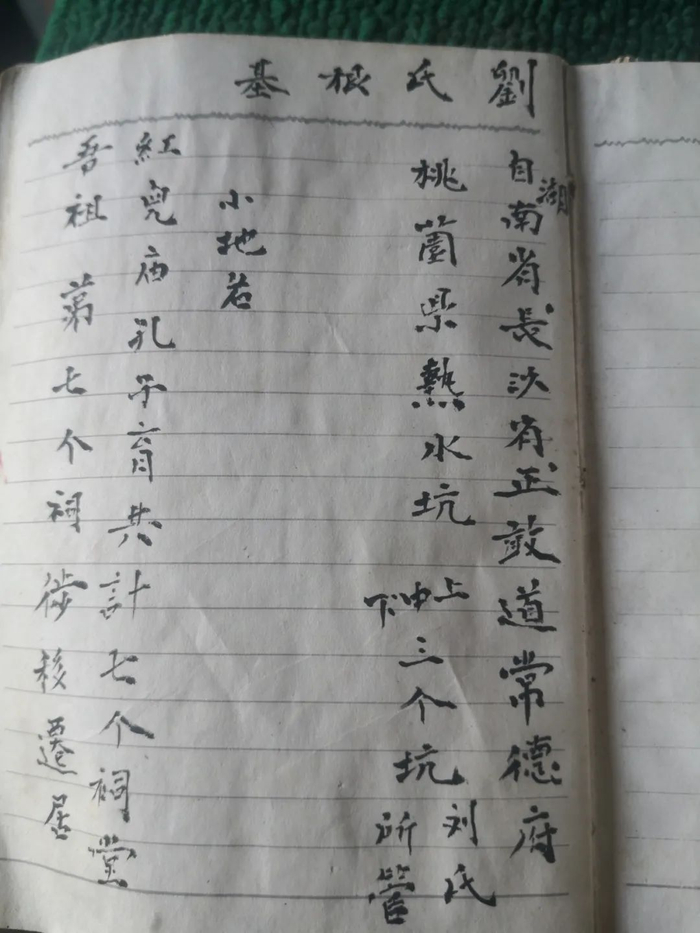 劉氏根基
自湖南省長沙省正敢道常德府
桃園県熱水坑上中下三个坑刘氏所管
小地名
紅兜庙孔子育共計七个祠堂
吾祖第七个祠徙移遷居